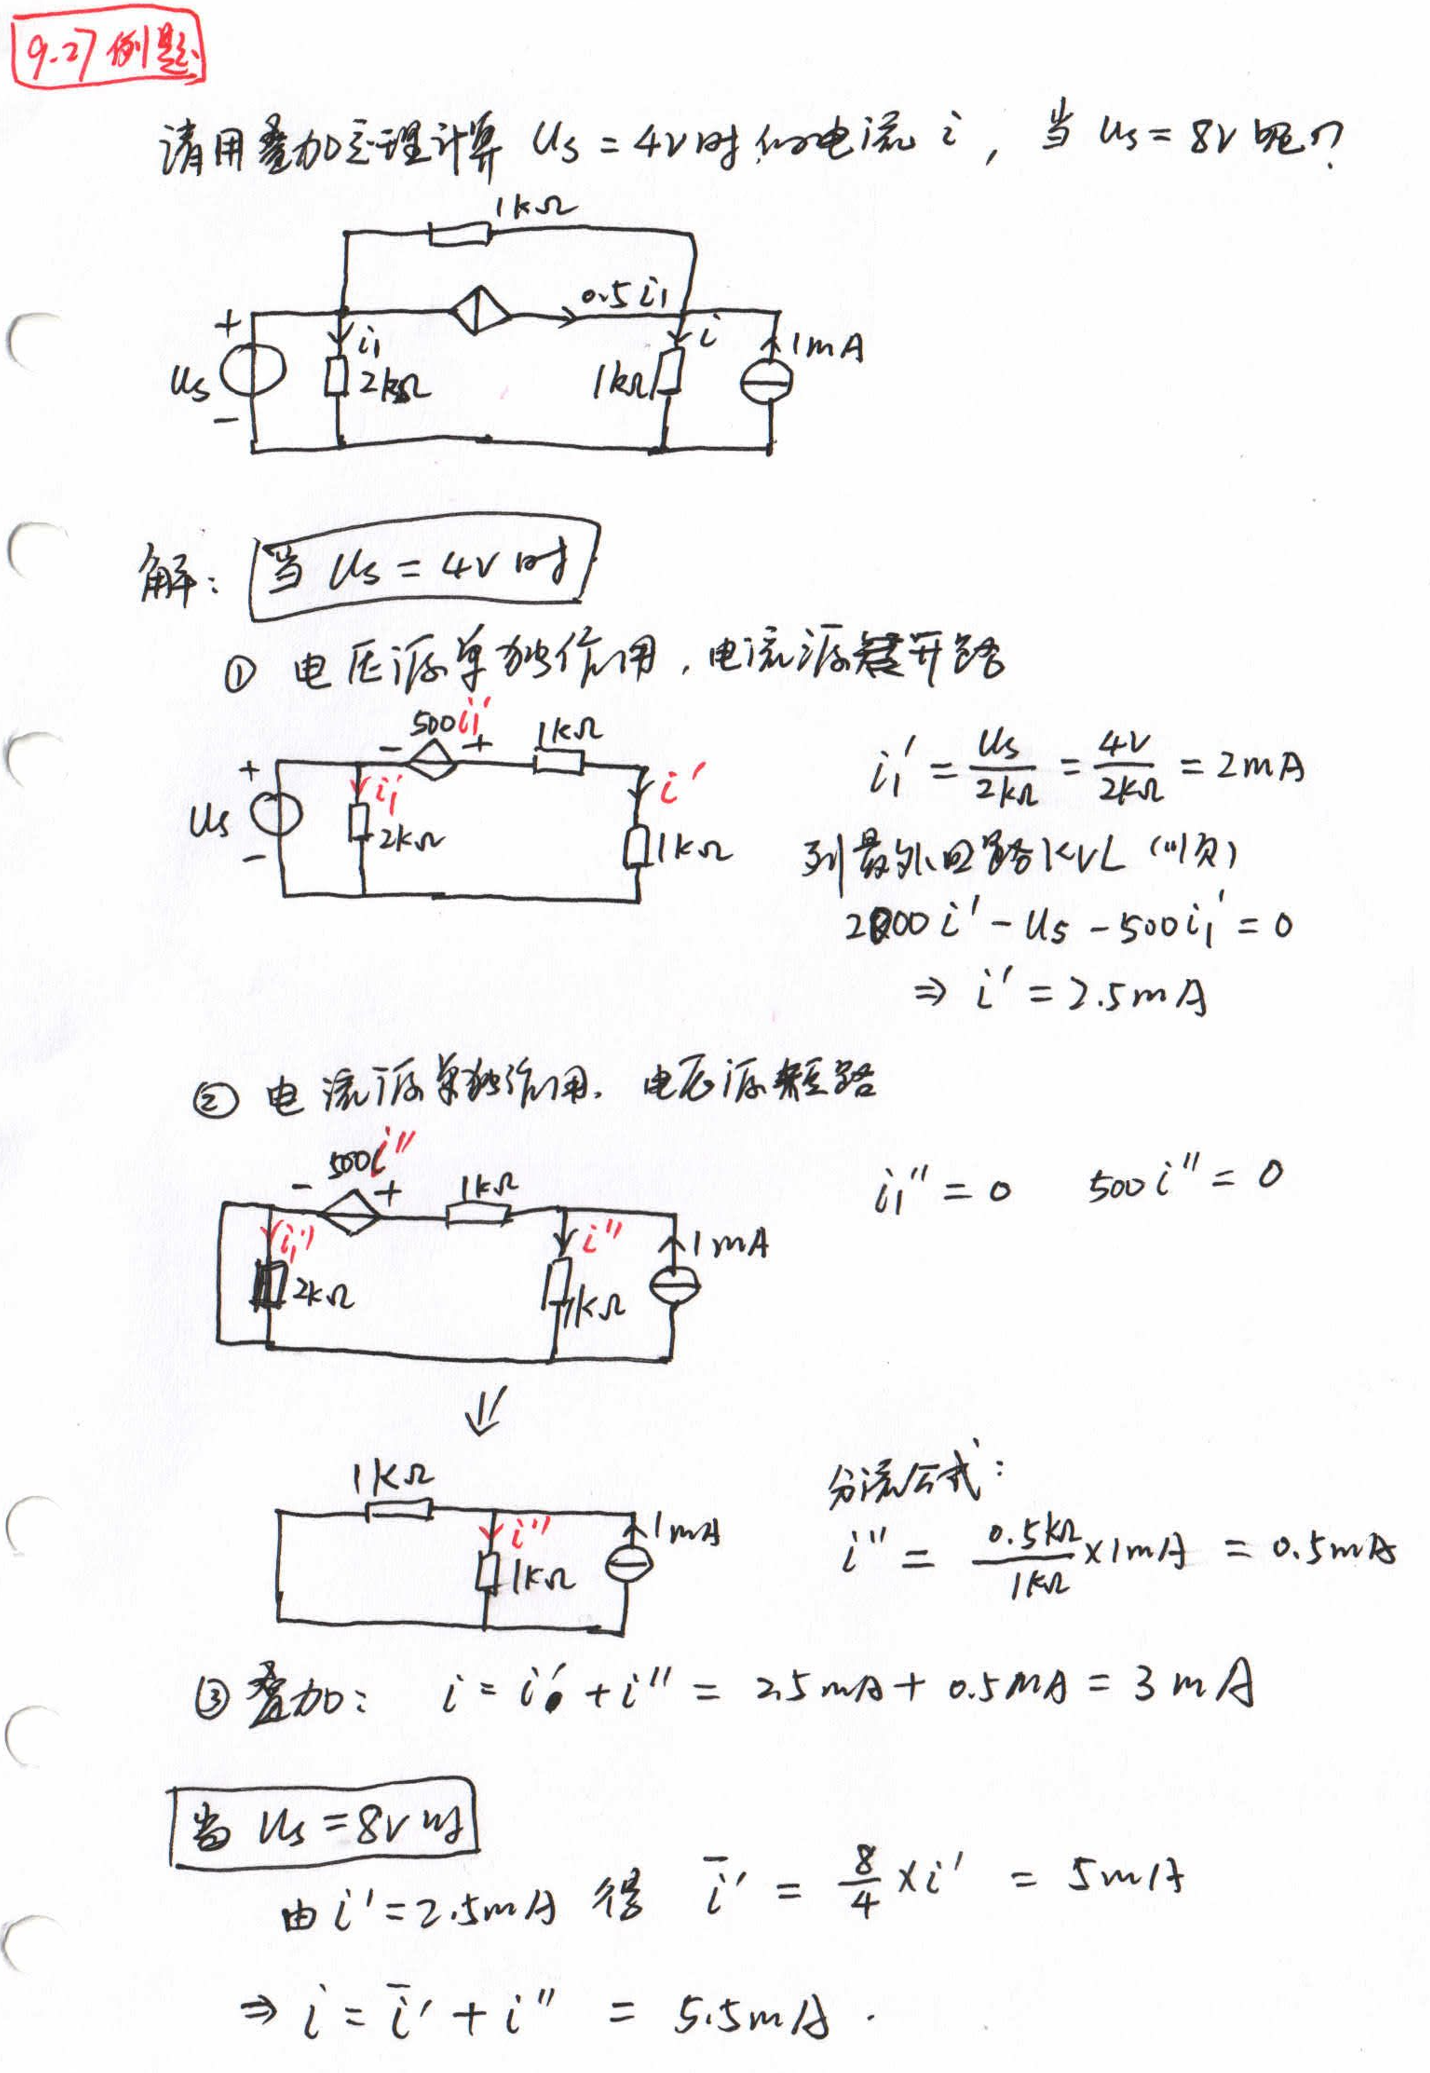 9-27 例题
请用叠加定理计算 Us = 4V时的电流 i , 当 Us = 8V呢?
1kΩ
0.5i₁
+
i₁
i
1mA
Us
2kΩ
1kΩ
-
解: 当 Us = 4V 时
① 电压源单独作用, 电流源开路
500i₁'
1kΩ
- +
+
i₁'
i'
Us
2kΩ
1kΩ
-
i₁' = Us/2kΩ = 4V/2kΩ = 2mA
列最外回路KVL (顺)
2000i' - Us - 500i₁' = 0
⇒ i' = 2.5mA
② 电流源单独作用, 电压源短路
500i''
- +
1kΩ
i₁''
i''
1mA
2kΩ
1kΩ
i₁'' = 0 500i'' = 0
⇓
1kΩ
i''
1mA
1kΩ
分流公式:
i'' = 0.5kΩ/1kΩ × 1mA = 0.5mA
③ 叠加: i = i' + i'' = 2.5mA + 0.5mA = 3mA
当 Us = 8V 时
由 i' = 2.5mA 得 i̅' = 8/4 × i' = 5mA
⇒ i = i̅' + i'' = 5.5mA .